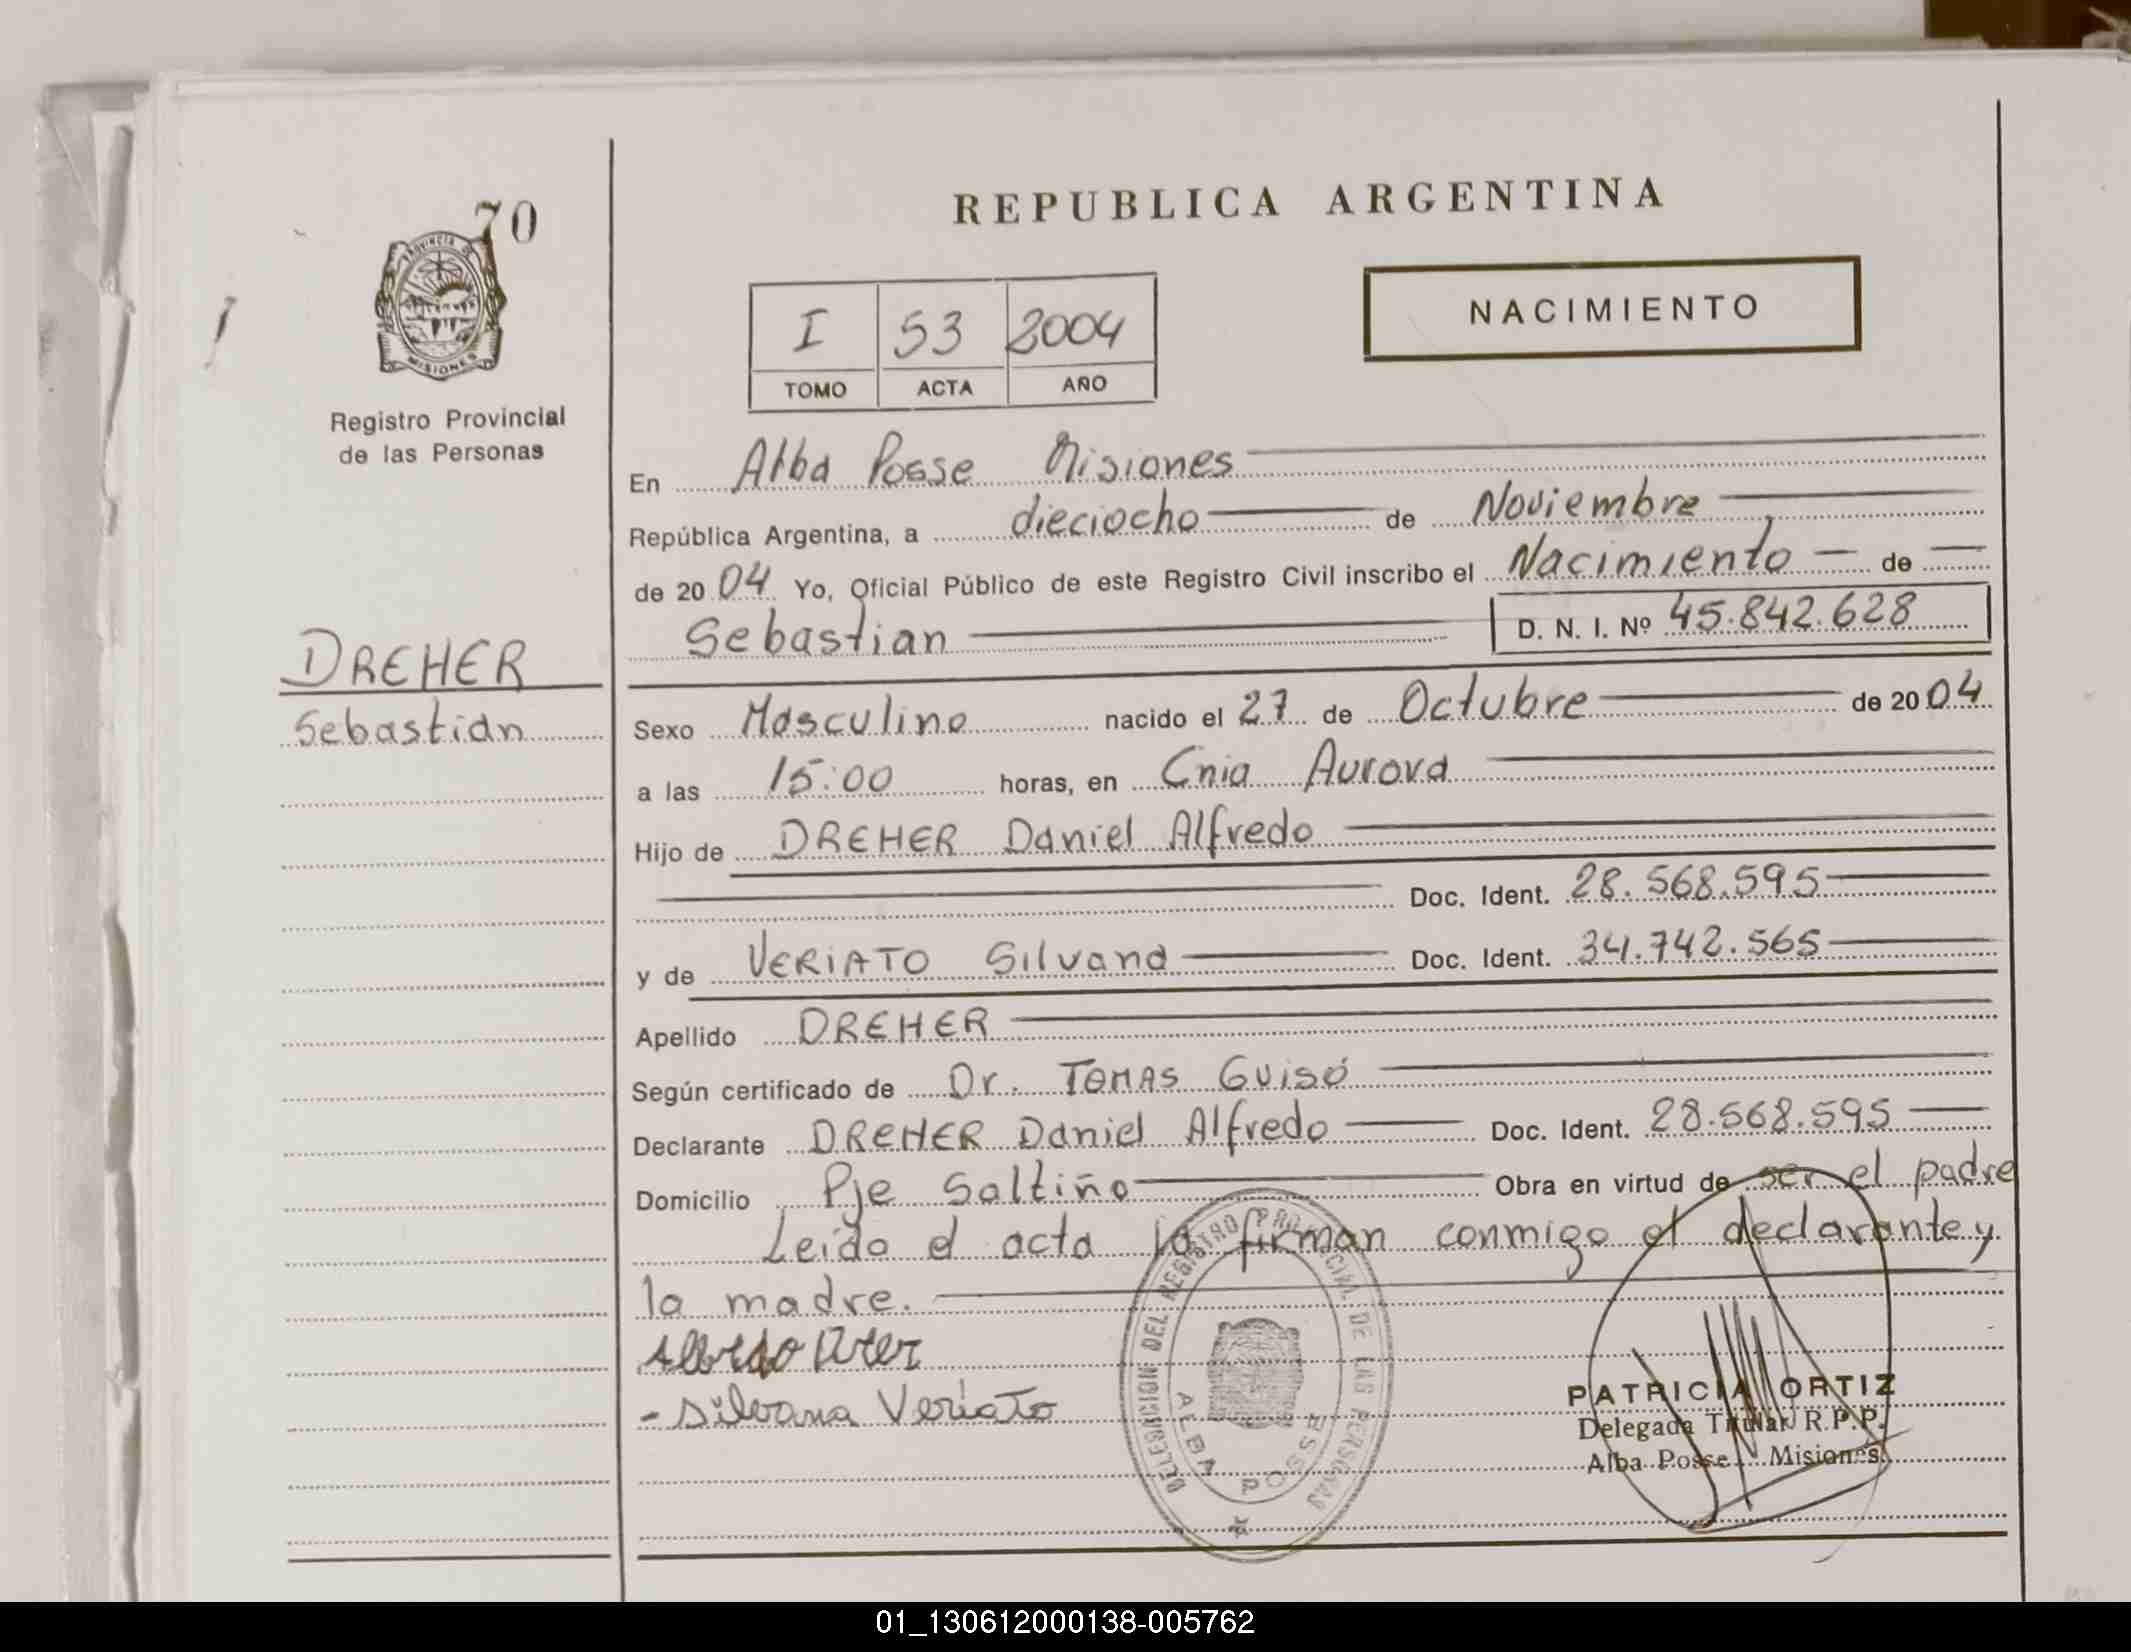 70
PROVINCIA DE
MISIONES
Registro Provincial
de las Personas
DREHER
Sebastian
REPUBLICA ARGENTINA
I 53 2004
TOMO ACTA AÑO
NACIMIENTO
En Alba Posse Misiones
República Argentina, a dieciocho de Noviembre
de 2004 Yo, Oficial Público de este Registro Civil inscribo el Nacimiento de
Sebastian D. N. I. Nº 45.842.628
Sexo Masculino nacido el 27 de Octubre de 2004
a las 15:00 horas, en Cnia Aurora
Hijo de DREHER Daniel Alfredo
Doc. Ident. 28.568.595
y de VERIATO Silvana Doc. Ident. 34.742.565
Apellido DREHER
Según certificado de Dr. TOMAS GUISÓ
Declarante DREHER Daniel Alfredo Doc. Ident. 28.568.595
Domicilio Pje Saltiño Obra en virtud de ser el padre
Leido el acta la firman conmigo el declarante y
la madre.
- Silvana Veriato
DELEGACION DEL REGISTRO PROVINCIAL DE LAS PERSONAS
ALBA POSSE
PATRICIA ORTIZ
Delegada Titular R.P.P.
Alba Posse Misiones
01_130612000138-005762